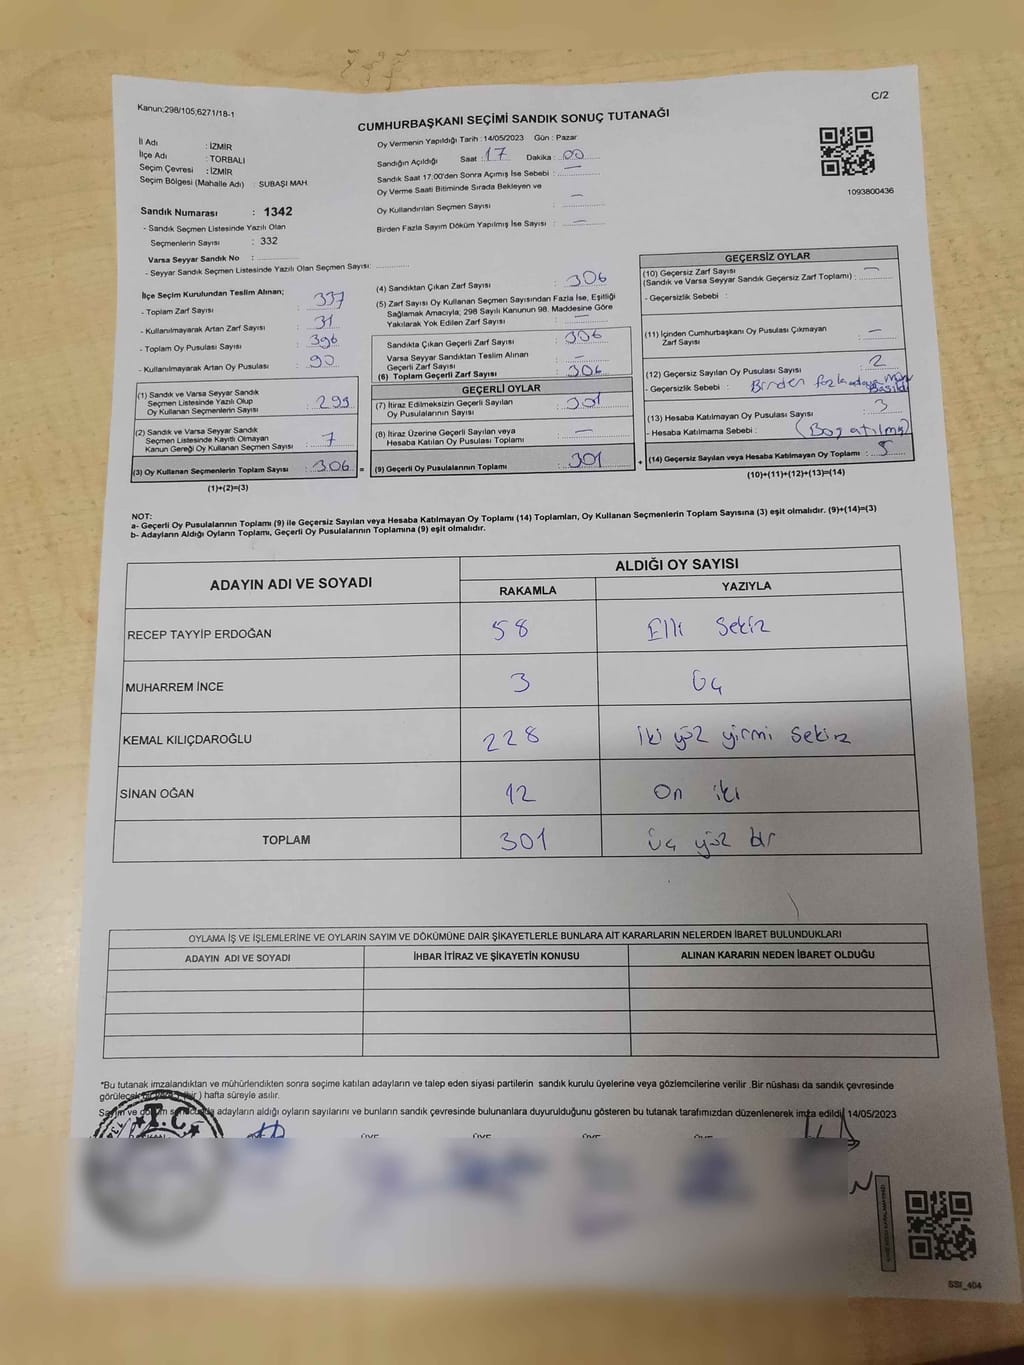 Kanun;298/105;6271/18-1
C/2
CUMHURBAŞKANI SEÇİMİ SANDIK SONUÇ TUTANAĞI
İl Adı : İZMİR
İlçe Adı : TORBALI
Seçim Çevresi : İZMİR
Seçim Bölgesi (Mahalle Adı) : SUBAŞI MAH.
Sandık Numarası : 1342
- Sandık Seçmen Listesinde Yazılı Olan
Seçmenlerin Sayısı : 332
Varsa Seyyar Sandık No :
- Seyyar Sandık Seçmen Listesinde Yazılı Olan Seçmen Sayısı:
Oy Vermenin Yapıldığı Tarih : 14/05/2023 Gün : Pazar
Sandığın Açıldığı Saat : 17 Dakika : 00
Sandık Saat 17:00'den Sonra Açımış İse Sebebi : —
Oy Verme Saati Bitiminde Sırada Bekleyen ve
Oy Kullandırılan Seçmen Sayısı : —
Birden Fazla Sayım Döküm Yapılmış İse Sayısı : —
1093800436
İlçe Seçim Kurulundan Teslim Alınan;
- Toplam Zarf Sayısı : 337
- Kullanılmayarak Artan Zarf Sayısı : 31
- Toplam Oy Pusulası Sayısı : 396
- Kullanılmayarak Artan Oy Pusulası : 90
(1) Sandık ve Varsa Seyyar Sandık
Seçmen Listesinde Yazılı Olup
Oy Kullanan Seçmenlerin Sayısı : 299
(2) Sandık ve Varsa Seyyar Sandık
Seçmen Listesinde Kayıtlı Olmayan
Kanun Gereği Oy Kullanan Seçmen Sayısı : 7
(3) Oy Kullanan Seçmenlerin Toplam Sayısı : 306 =
(1)+(2)=(3)
(4) Sandıktan Çıkan Zarf Sayısı : 306
(5) Zarf Sayısı Oy Kullanan Seçmen Sayısından Fazla İse, Eşitliği
Sağlamak Amacıyla; 298 Sayılı Kanunun 98. Maddesine Göre
Yakılarak Yok Edilen Zarf Sayısı : —
Sandıkta Çıkan Geçerli Zarf Sayısı : 306
Varsa Seyyar Sandıktan Teslim Alınan
Geçerli Zarf Sayısı : —
(6) Toplam Geçerli Zarf Sayısı : 306
GEÇERLİ OYLAR
(7) İtiraz Edilmeksizin Geçerli Sayılan
Oy Pusulalarının Sayısı : 301
(8) İtiraz Üzerine Geçerli Sayılan veya
Hesaba Katılan Oy Pusulası Toplamı : —
(9) Geçerli Oy Pusulalarının Toplamı : 301 +
GEÇERSİZ OYLAR
(10) Geçersiz Zarf Sayısı
(Sandık ve Varsa Seyyar Sandık Geçersiz Zarf Toplamı) : —
- Geçersizlik Sebebi :
(11) İçinden Cumhurbaşkanı Oy Pusulası Çıkmayan
Zarf Sayısı : —
(12) Geçersiz Sayılan Oy Pusulası Sayısı : 2
- Geçersizlik Sebebi : Birden fazla adaya mühür basıldı
(13) Hesaba Katılmayan Oy Pusulası Sayısı : 3
- Hesaba Katılmama Sebebi : (Boş atılmış)
(14) Geçersiz Sayılan veya Hesaba Katılmayan Oy Toplamı : 5
(10)+(11)+(12)+(13)=(14)
NOT:
a- Geçerli Oy Pusulalarının Toplamı (9) ile Geçersiz Sayılan veya Hesaba Katılmayan Oy Toplamı (14) Toplamları, Oy Kullanan Seçmenlerin Toplam Sayısına (3) eşit olmalıdır. (9)+(14)=(3)
b- Adayların Aldığı Oyların Toplamı, Geçerli Oy Pusulalarının Toplamına (9) eşit olmalıdır.
ADAYIN ADI VE SOYADI ALDIĞI OY SAYISI
RAKAMLA YAZIYLA
RECEP TAYYİP ERDOĞAN 58 Elli Sekiz
MUHARREM İNCE 3 Üç
KEMAL KILIÇDAROĞLU 228 iki yüz yirmi sekiz
SİNAN OĞAN 12 On iki
TOPLAM 301 üç yüz bir
OYLAMA İŞ VE İŞLEMLERİNE VE OYLARIN SAYIM VE DÖKÜMÜNE DAİR ŞİKAYETLERLE BUNLARA AİT KARARLARIN NELERDEN İBARET BULUNDUKLARI
ADAYIN ADI VE SOYADI İHBAR İTİRAZ VE ŞİKAYETİN KONUSU ALINAN KARARIN NEDEN İBARET OLDUĞU
*Bu tutanak imzalandıktan ve mühürlendikten sonra seçime katılan adayların ve talep eden siyasi partilerin sandık kurulu üyelerine veya gözlemcilerine verilir .Bir nüshası da sandık çevresinde
görülecek bir ) hafta süreyle asılır.
Sayım ve döküm sonucunda adayların aldığı oyların sayılarını ve bunların sandık çevresinde bulunanlara duyurulduğunu gösteren bu tutanak tarafımızdan düzenlenerek imza edildi. 14/05/2023
T.C.
SSI_404